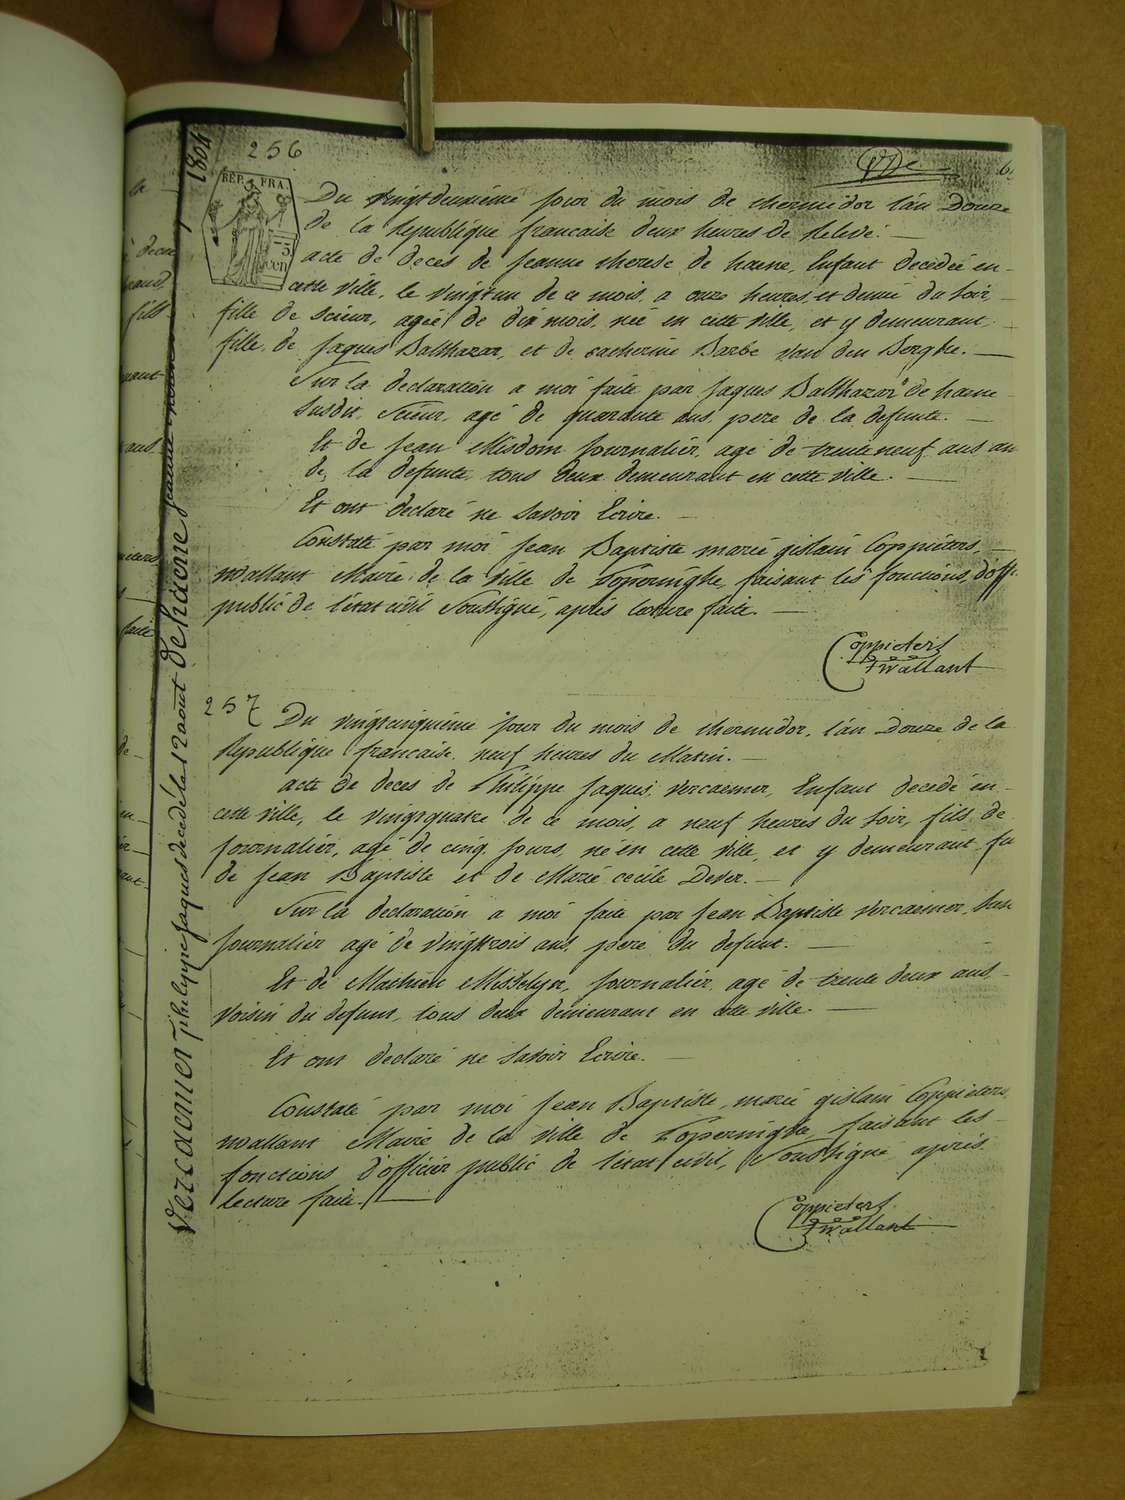 1804
256
REP. FRA.
Du vingtdeuxieme jour du mois de thermidor l'an Douze
de la Republique francaise deux heures de Relevé.
acte de deces de Jeanne therese de haene, Enfant decedée en
cette ville, le vingtun de ce mois, a onze heures et demie du soir,
fille de scieur, agée de dix mois, née en cette ville, et y demeurant,
fille de Jaques Balthazar, et de catherine Barbe Van den Berghe.
Sur la declaration a moi faite par Jaques Balthazar de haene
susdit, scieur, agé de quarante ans, pere de la defunte.
Et de Jean Misdom journalier, agé de trente neuf ans
de la defunte, tous deux demeurant en cette ville.
Et ont declaré ne savoir Ecrire.
Constaté par moi Jean Baptiste marie gislain Coppieters,
wallant Maire de la ville de Poperinghe, faisant les fonctions d'off.
public de l'etat civil Soussigné, après lecture faite.
Coppieters
wallant
257
Du vingtcinquieme jour du mois de thermidor, l'an Douze de la
Republique francaise, neuf heures du Matin.
acte de deces de Philippe Jaques Vercaemer, Enfant decedé en
cette ville, le vingtquatre de ce mois, a neuf heures du soir, fils de
journalier, agé de cinq jours, né en cette ville, et y demeurant,
de Jean Baptiste et de Marie cecile Dever.
Sur la declaration a moi faite par Jean Baptiste Vercaemer,
journalier agé de vingttrois ans, pere du defunt.
Et de Mathieu Misselyn, journalier, agé de trente deux ans
voisin du defunt, tous deux demeurant en cette ville.
Et ont declaré ne savoir Ecrire.
Constaté par moi Jean Baptiste, marie gislain Coppieters
wallant Maire de la ville de Poperinghe faisant les
fonctions d'officier public de l'etat civil, Soussigné après
Lecture faite.
Coppieters
wallant
De haene Jeanne
Vercaemer Philippe Jaques decedé la 12 aout